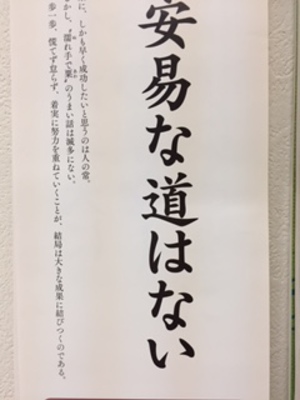 安易な道はない
に、しかも早く成功したいと思うのは人の常。
かし、"濡れ手で粟"のうまい話は滅多にない。
歩一歩、慌てず怠らず、着実に努力を重ねていくことが、結局は大きな成果に結びつくのである。